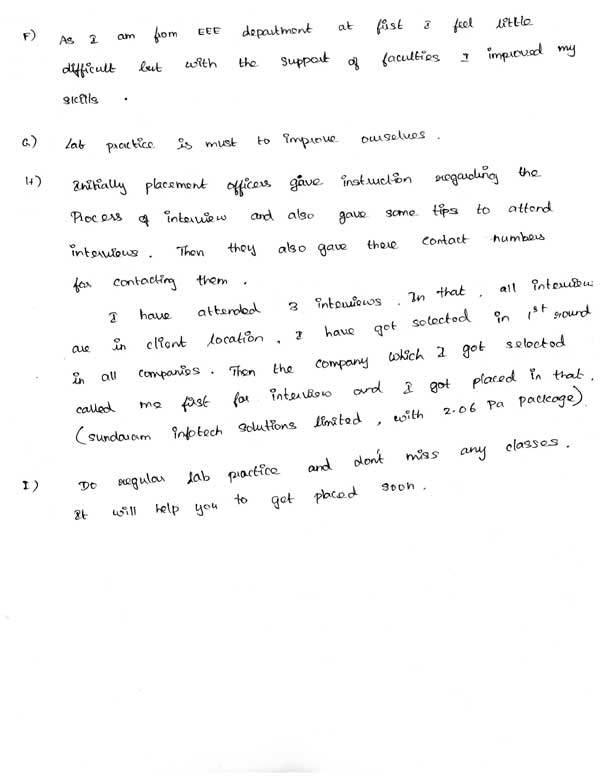 F) As I am from EEE department at first I feel little
difficult but with the support of faculties I improved my
skills .
G.) Lab practice is must to improve ourselves .
H) Initially placement officers gave instruction regarding the
Process of interview and also gave some tips to attend
interviews . Then they also gave there contact numbers
for contacting them .
I have attended 3 interviews . In that , all interview
are in client location . I have got selected in 1st round
in all companies . Then the company which I got selected
called me first for interview and I got placed in that .
(sundaram infotech solutions limited , with 2.06 Pa package)
I) Do regular lab practice and don't miss any classes .
It will help you to get placed soon .